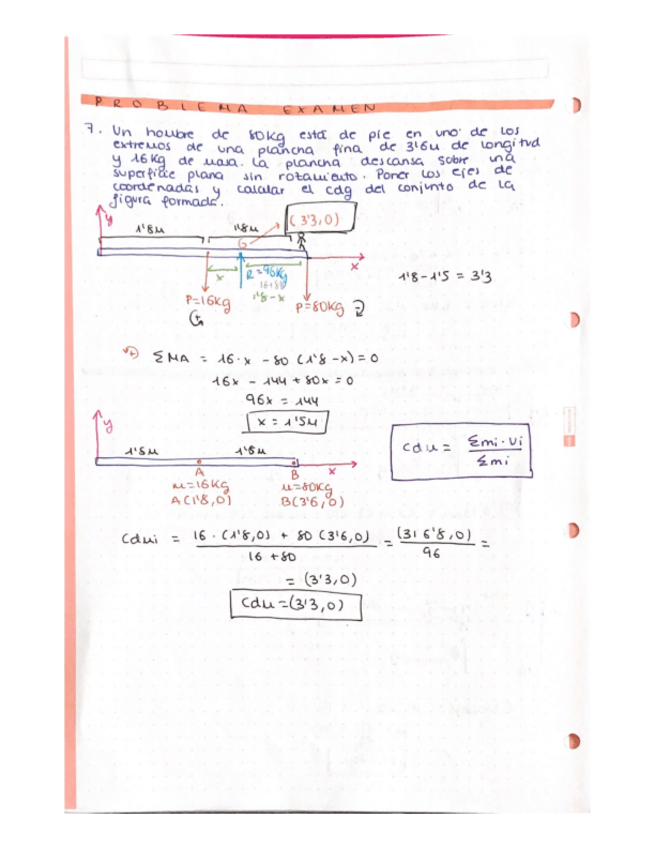 PROBLEMA EXAMEN
7. Un hombre de 80Kg está de pie en uno de los
extremos de una plancha fina de 3'6m de longitud
y 16Kg de masa. La plancha descansa sobre una
superficie plana sin rozamiento. Poner los ejes de
coordenadas y calcular el cdg del conjunto de la
figura formada.
y
1'8m 1'8m (3'3,0)
G
x
x R=96Kg
16+80
1'8-x
P=16Kg P=80Kg
1'8-1'5 = 3'3
ΣMA = 16·x - 80 (1'8-x)=0
16x - 144 + 80x = 0
96x = 144
x = 1'5m
y
1'8m 1'8m
A B x
m=16Kg m=80Kg
A(1'8,0) B(3'6,0)
Cdm = Σmi·vi
Σmi
Cdmi = 16·(1'8,0) + 80(3'6,0) = (316'8,0) =
16+80 96
= (3'3,0)
Cdm=(3'3,0)